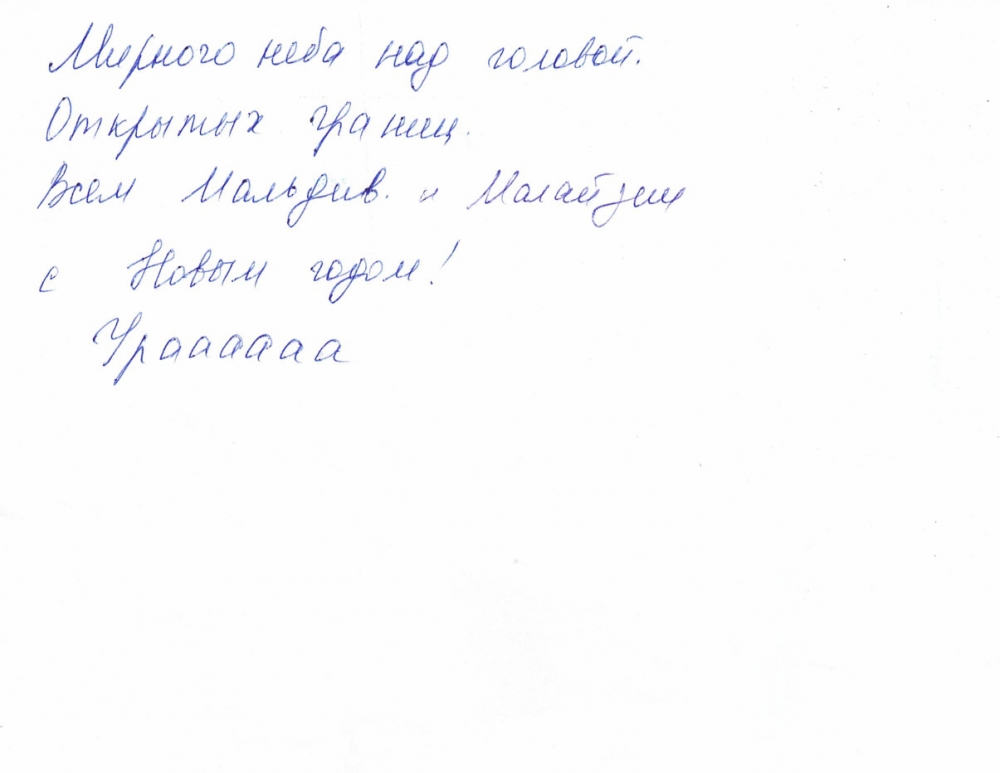 Мирного неба над головой.
Открытых границ.
Всем Мальдив. и Малайзии
с Новым годом!
Ураааааа